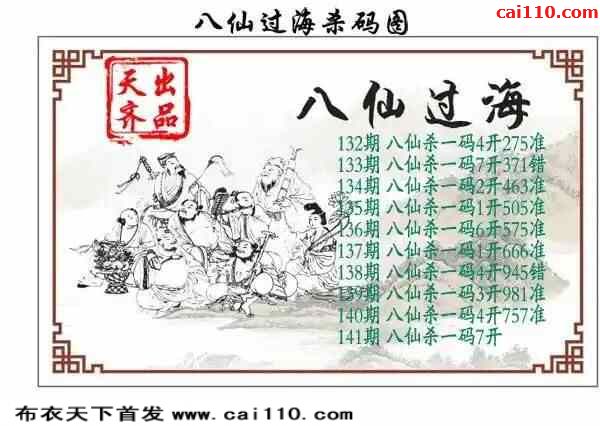 八仙过海杀码图
cai110.com
天齐
出品
八仙过海
132期 八仙杀一码4开275准
133期 八仙杀一码7开371错
134期 八仙杀一码2开463准
135期 八仙杀一码1开505准
136期 八仙杀一码6开575准
137期 八仙杀一码1开666准
138期 八仙杀一码4开945错
139期 八仙杀一码3开981准
140期 八仙杀一码4开757准
141期 八仙杀一码7开
布衣天下首发 www.cai110.com